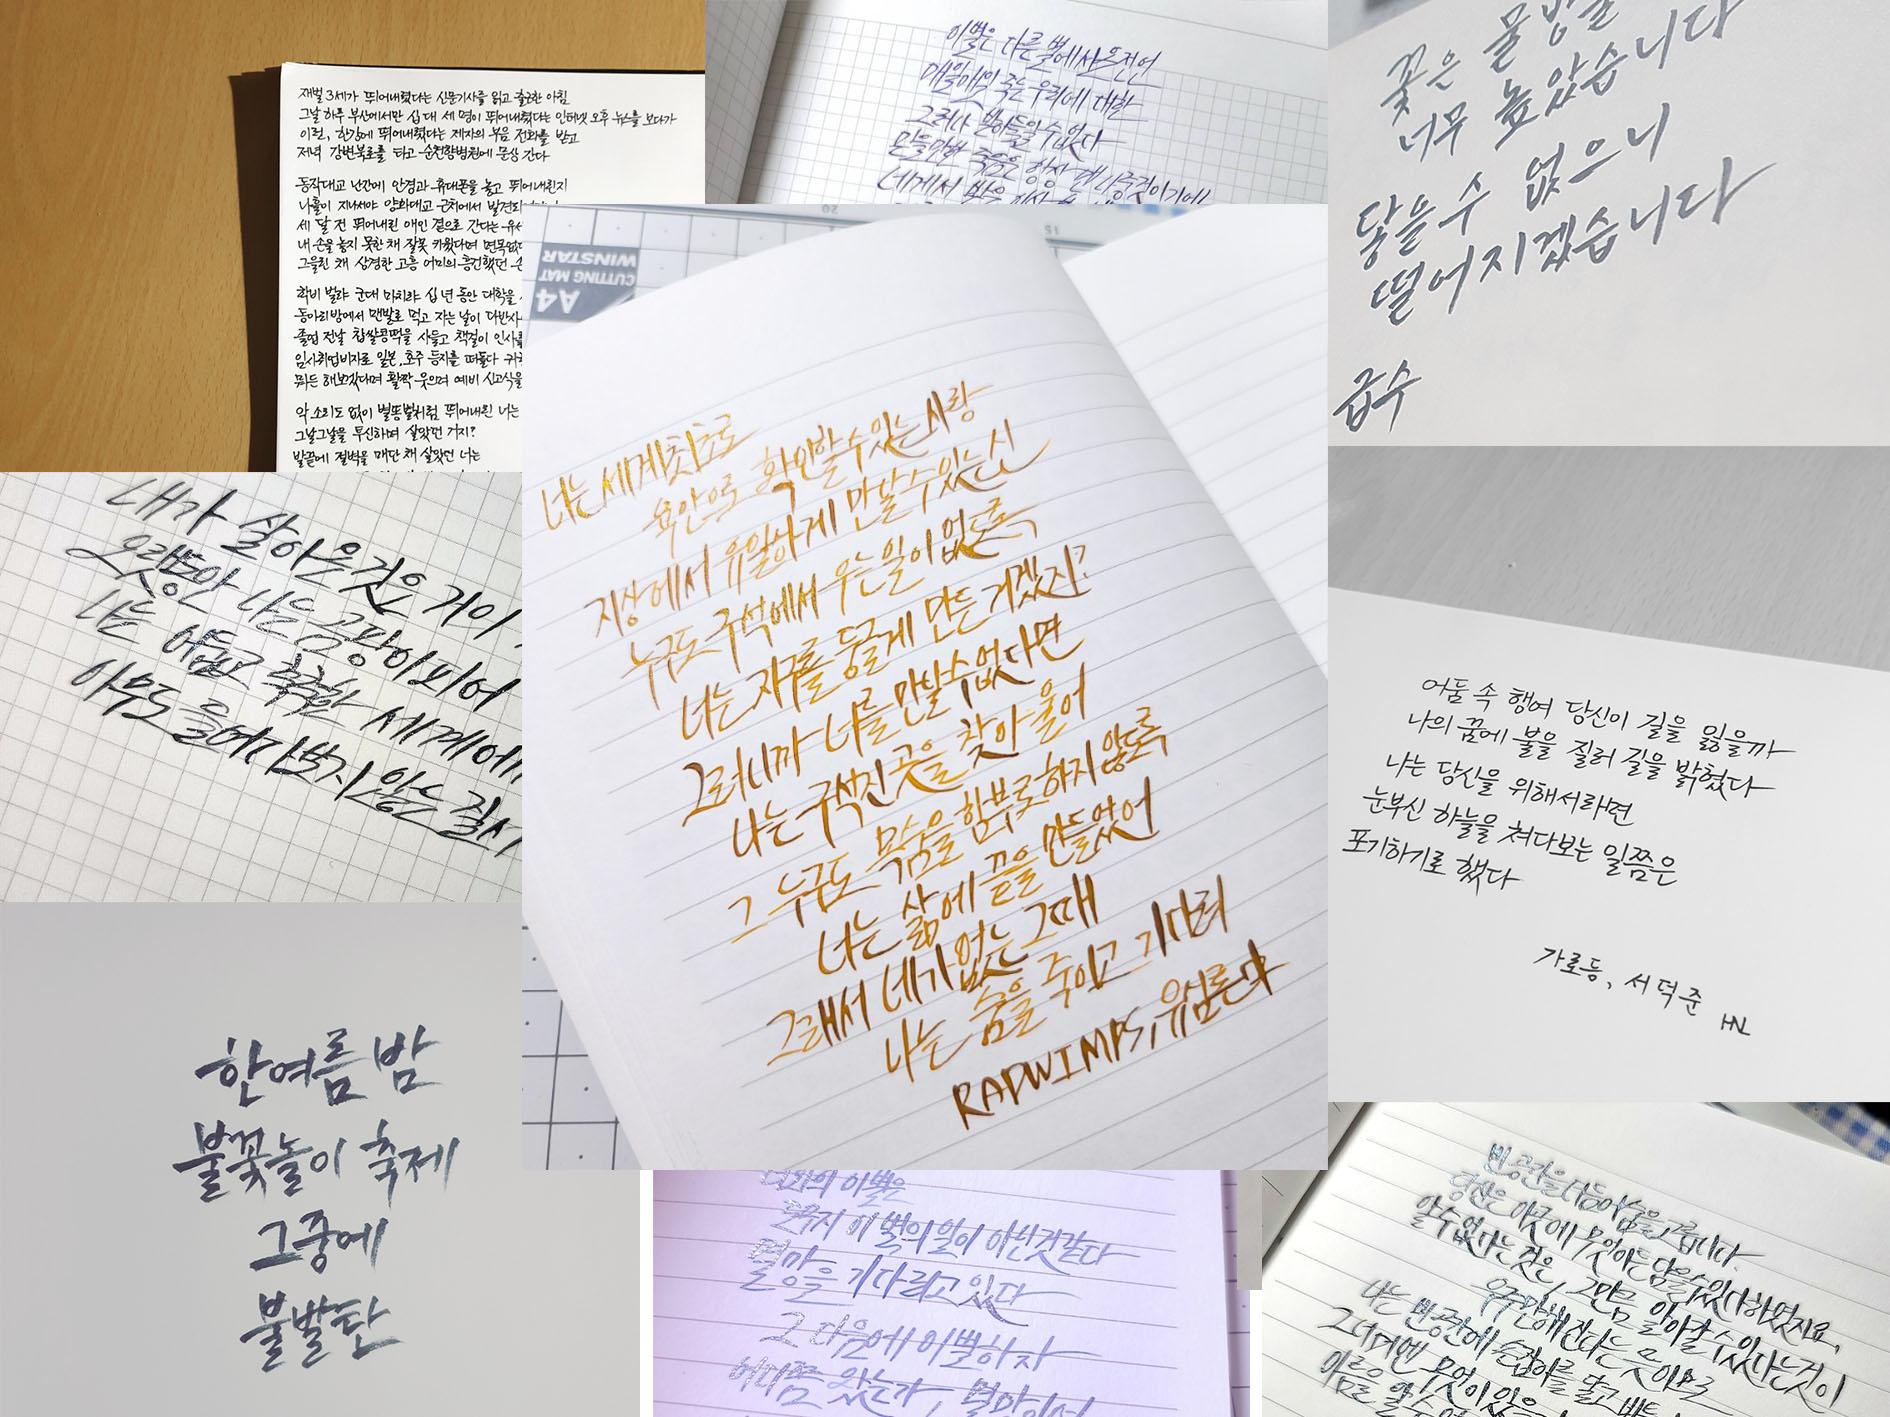 재벌 3세가 뛰어내렸다는 신문기사를 읽고 출근한 아침
그날 하루 부산에서만 십대 세 명이 뛰어내렸다는 인터넷 오후 뉴스를 보다가
이런, 한강에 뛰어내렸다는 제자의 부음 전화를 받고
저녁 강변북로를 타고 순천향병원에 문상 간다
동작대교 난간에 안경과 휴대폰을 놓고 뛰어내린지
나흘이 지나서야 양화대교 근처에서 발견되
세 달 전 뛰어내린 애인 곁으로 간다는 유서
내 손을 놓지 못한 채 잘못 키웠다며 면목없다
그을린 채 상경한 고흥 어미의 흥건했던 손
학비 벌랴 군대 마치랴 십 년 동안 대학을
동아리방에서 맨발로 먹고 자는 날이 다반사
졸업 전날 찹쌀콩떡을 사들고 책걸이 인사를
임시취업비자로 일본, 호주 등지를 떠돌다 귀
뭐든 해보겠다며 활짝 웃으며 예비 신고식을
악 소리도 없이 별똥별처럼 뛰어내린 너는
그날그날을 투신하며 살았던 거지?
발끝에 절벽을 매단 채 살았던 너는
이별은 다른 별에서 오전어
매일매일 죽는 우리에 대한
그러나 받아들일 수 없다
꽃은 물방울
너무 높았습니다
닿을 수 없으니
떨어지겠습니다
급수
너는 세계 최초로
육안으로 확인할 수 있는 사랑
지상에서 유일하게 만날 수 있는 신
누구도 구석에서 우는 일이 없도록
너는 지구를 둥글게 만든 거겠지?
그러니까 너를 만날 수 없다면
나는 구석진 곳을 찾아 울어
그 누구도 목숨을 함부로 하지 않도록
너는 삶에 끝을 만들었어
그래서 네가 없는 그때
나는 숨을 죽이고 기다려
RADWIMPS, 유심론
내가 살아온 것은 거의
오랫동안 나는 곰팡이 피어
나는 어둡고 축축한 세계에서
아무도 들여다보지 않는 질서
어둠 속 행여 당신이 길을 잃을까
나의 꿈에 불을 질러 길을 밝혔다
나는 당신을 위해서라면
눈부신 하늘을 쳐다보는 일쯤은
포기하기로 했다
가로등, 서덕준
HNL
한여름 밤
불꽃놀이 축제
그중에
불발탄
이별은
이 별의 일이 아닌 것 같다
멸망을 기다리고 있다
그 다음에 이별하자
어디쯤 있는가, 멸망이여
빈 공간을 더듬어 숨을 고릅니다.
당신은 이곳에 무엇이든 담을 수 있다 하였지요,
알 수 없다는 것은, 그만큼 알아갈 수 있다는 것이
우주만해진다는 뜻이므로
나는 빈 공간에 손잡이를 달고
그 너머엔 무엇이 있을
이름을 알 수
WINSTAR
CUTTING MAT
A4
20
15